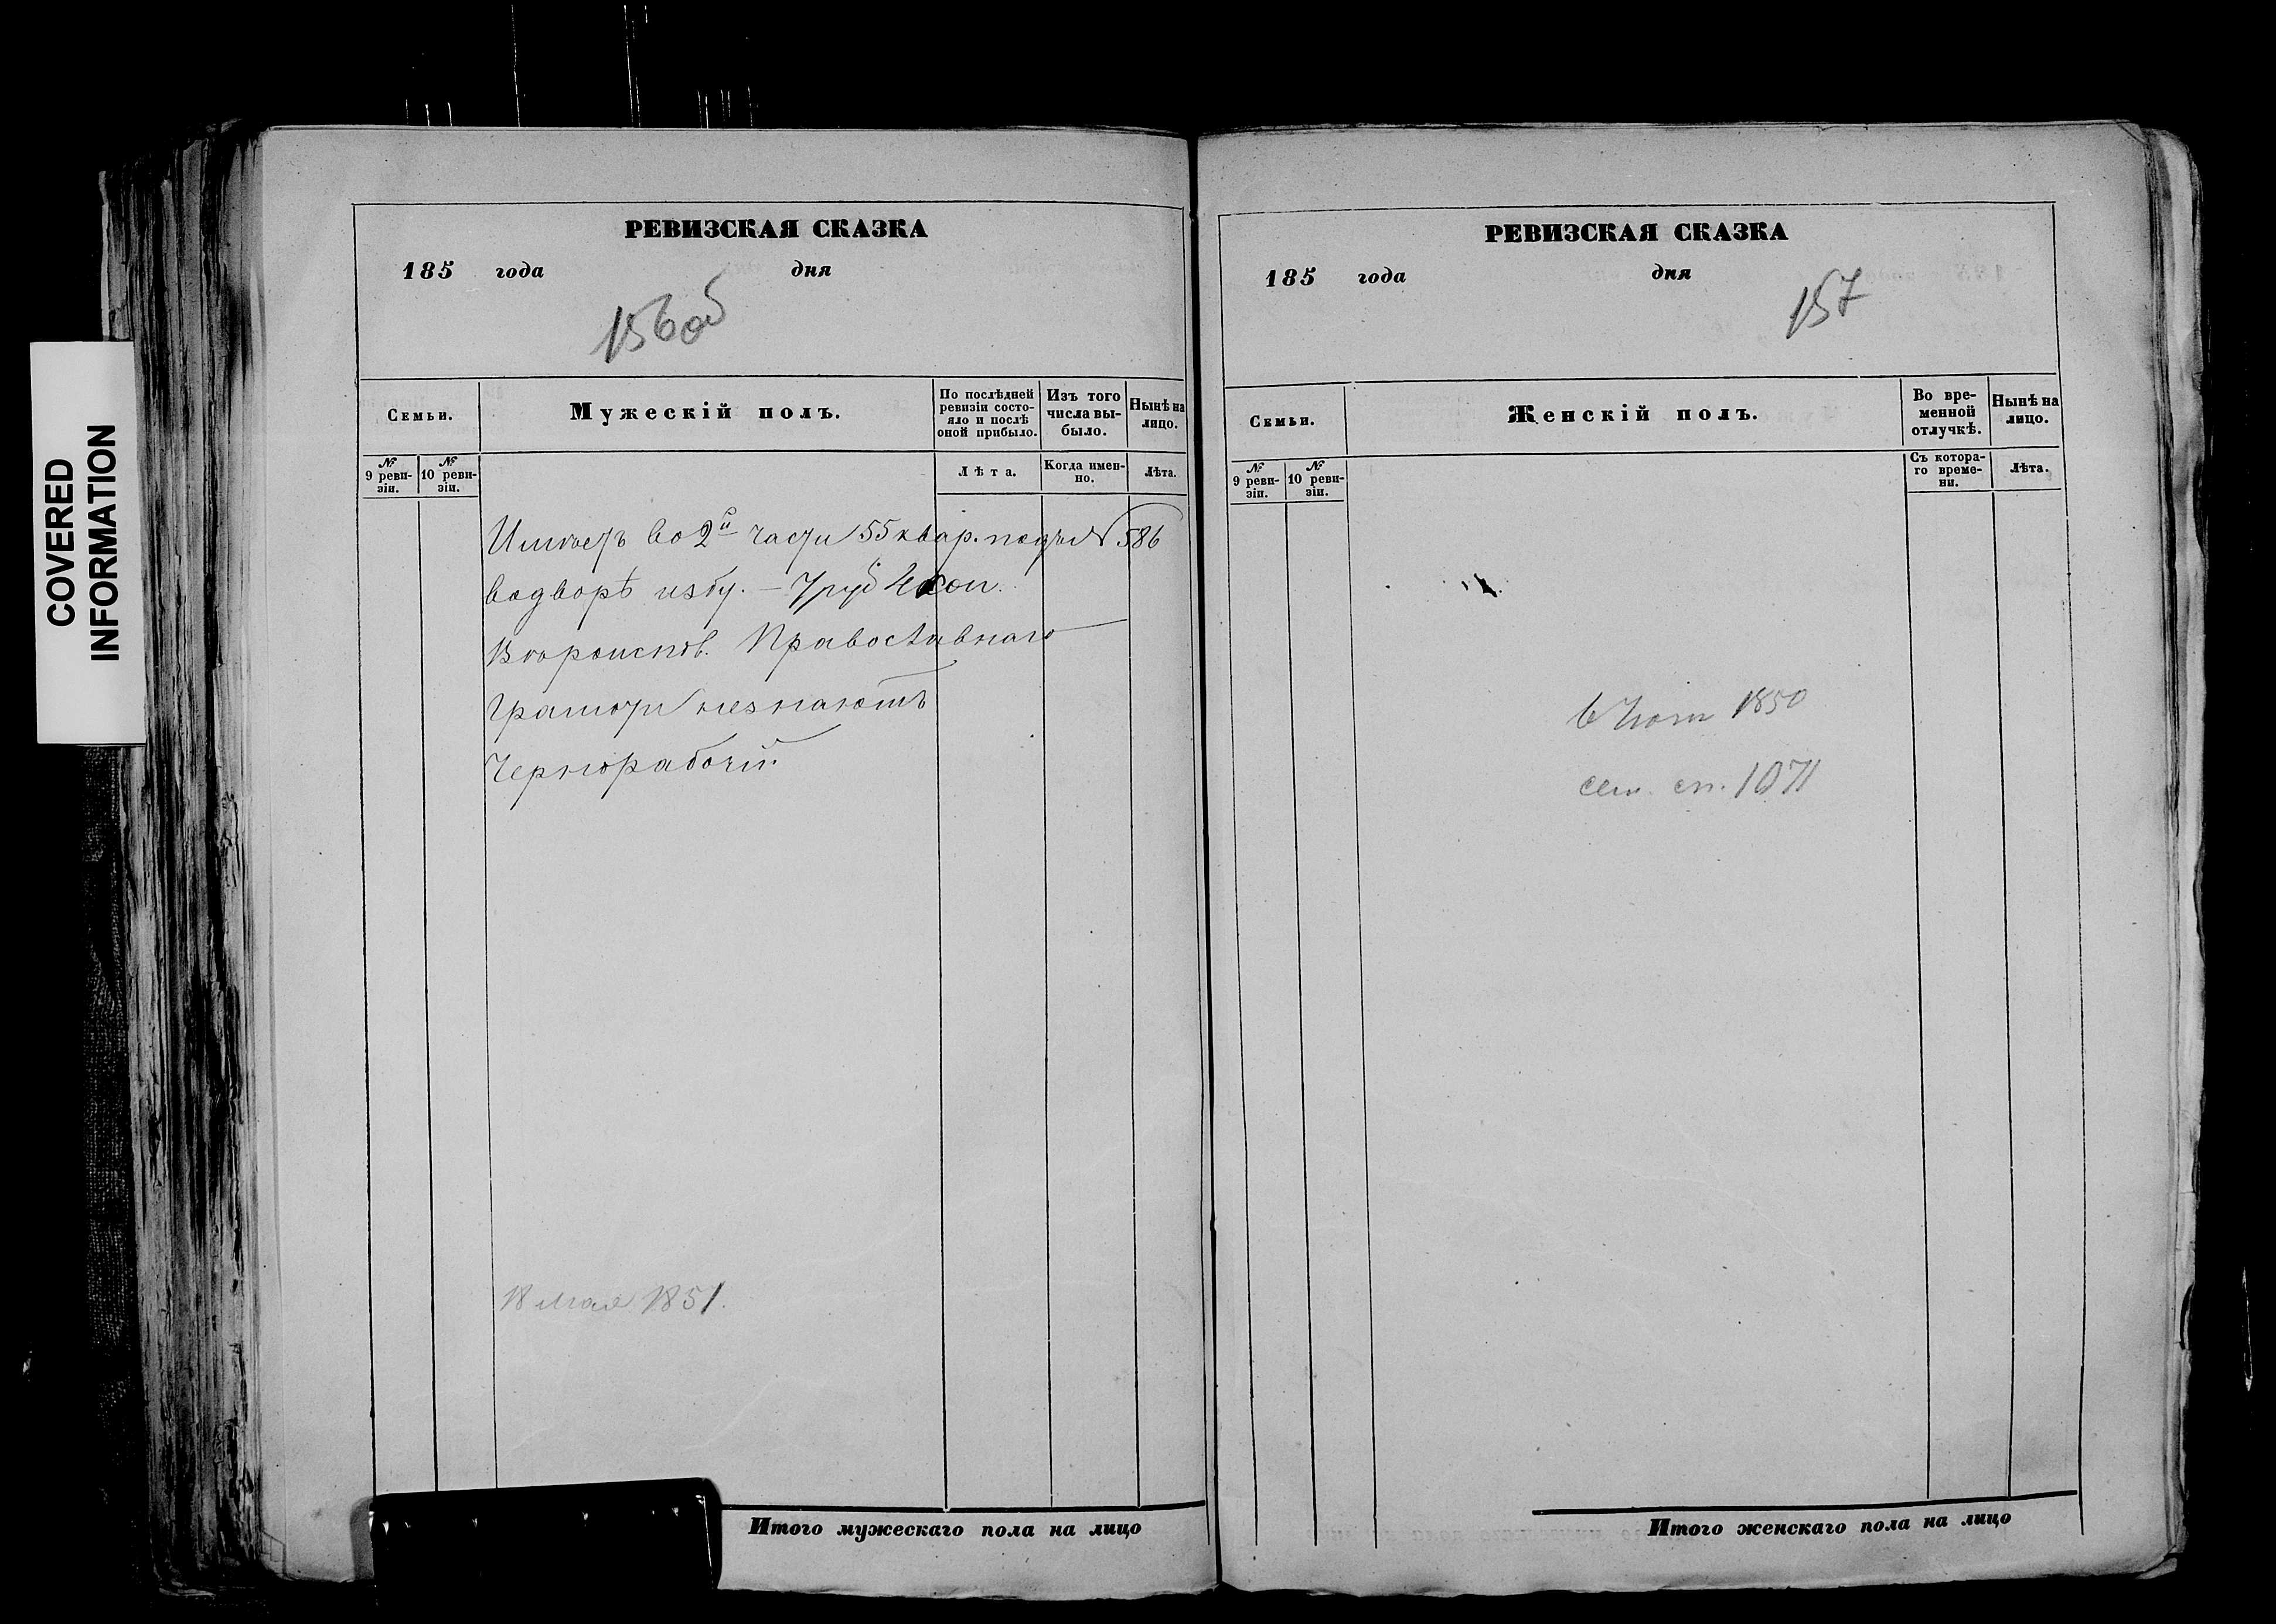 COVERED
INFORMATION
РЕВИЗСКАЯ СКАЗКА
185 года дня
156об
Семьи.
Мужескій полъ.
По послѣдней ревизіи состояло и послѣ оной прибыло.
Изъ того числа выбыло.
Нынѣ на лицо.
№ 9 ревизіи.
№ 10 ревизіи.
Лѣта.
Когда именно.
Лѣта.
Имѣетъ во 2й части 55 квар. подъ № 586
водворѣ избу. — 7 руб 4 коп.
Вѣроиспов. Православнаго
Грамоти незнаютъ
Чернорабочій.
18 мая 1851.
Итого мужескаго пола на лицо
РЕВИЗСКАЯ СКАЗКА
185 года дня
157
Семьи.
Женскій полъ.
Во временной отлучкѣ.
Нынѣ на лицо.
№ 9 ревизіи.
№ 10 ревизіи.
Съ котораго времени.
Лѣта.
1850
сем. сп. 1071
Итого женскаго пола на лицо